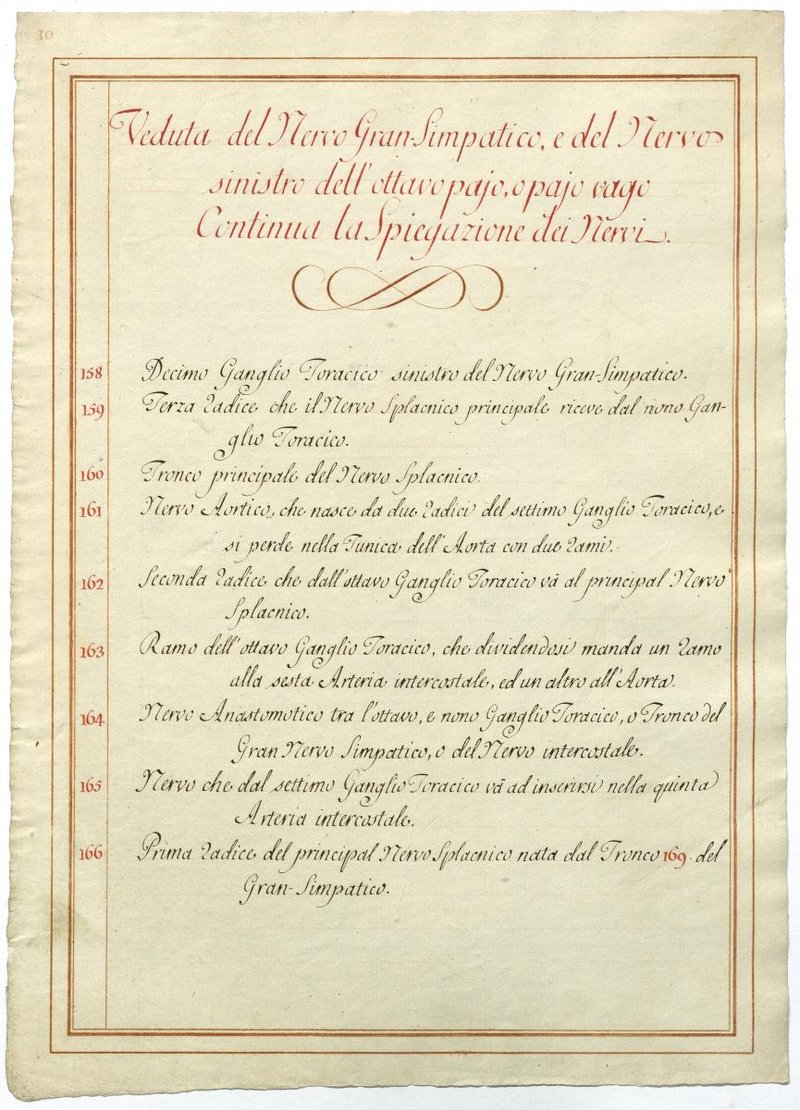 10
Veduta del Nervo Gran-Simpatico, e del Nervo
sinistro dell'ottavo pajo, o pajo vago
Continua la Spiegazione dei Nervi.
158 Decimo Ganglio Toracico sinistro del Nervo Gran-Simpatico.
159 Terza radice che il Nervo Splacnico principale riceve dal nono Gan-
glio Toracico.
160 Tronco principale del Nervo Splacnico.
161 Nervo Aortico, che nasce da due radici del settimo Ganglio Toracico, e
si perde nella Tunica dell'Aorta con due rami.
162 Seconda radice che dall'ottavo Ganglio Toracico và al principal Nervo
Splacnico.
163 Ramo dell'ottavo Ganglio Toracico, che dividendosi manda un ramo
alla sesta Arteria intercostale, ed un altro all'Aorta.
164 Nervo Anastomotico tra l'ottavo, e nono Ganglio Toracico, o Tronco del
Gran Nervo Simpatico, o del Nervo intercostale.
165 Nervo che dal settimo Ganglio Toracico và ad inserirsi nella quinta
Arteria intercostale.
166 Prima radice del principal Nervo Splacnico nata dal Tronco 169. del
Gran-Simpatico.